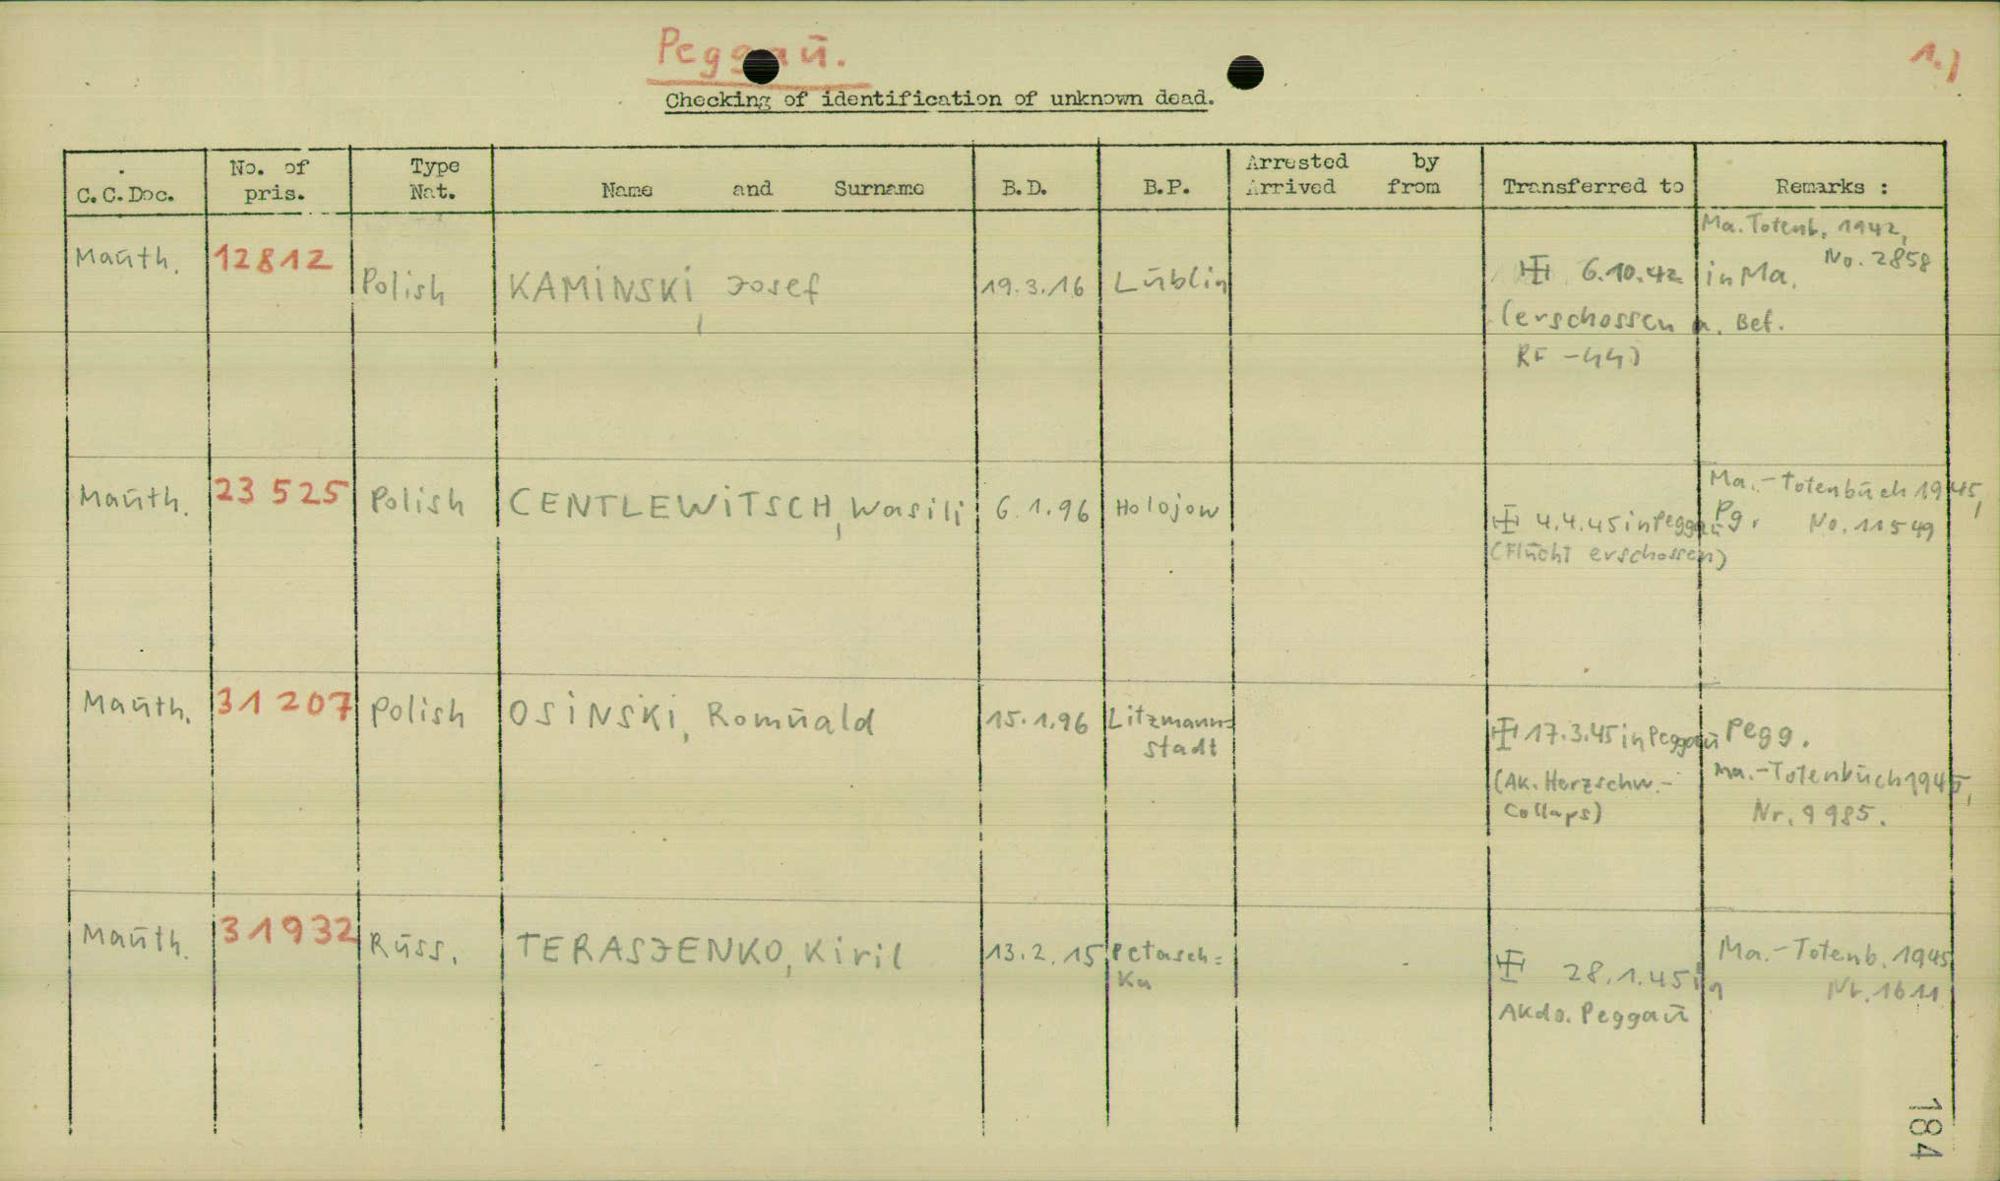 Peggaŭ.
1.)
Checking of identification of unknown dead.
C.C.Doc. No. of pris. Type Nat. Name and Surname B.D. B.P. Arrested by Arrived from Transferred to Remarks :
Maŭth. 12812 Polish KAMINSKI, Josef 19.3.16 Lŭblin
Ma. Totenb. 1942,
No. 2858
6.10.42 in Ma.
(erschossen a. Bef.
RF -44)
Maŭth. 23 525 Polish CENTLEWITSCH, Wasili 6.1.96 Holojow
Ma.-Totenbŭch 1945,
4.4.45 in Peggaŭ Pg. No. 11549
(Flŭcht erschossen)
Maŭth. 31 207 Polish OSINSKI, Romŭald 15.1.96 Litzmann=
stadt
17.3.45 in Peggaŭ Pegg.
(Ak. Herzschw.- Ma.-Totenbŭch 1945,
Collaps) Nr. 9985.
Maŭth. 31932 Rŭss. TERASJENKO, Kiril 13.2.15 Petasch=
Ka
Ma.-Totenb. 1945
28.1.45 in Nr. 1611
AKdo. Peggaŭ
184